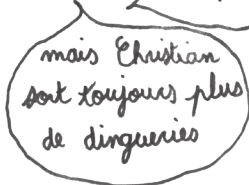 mais Christian
sort toujours plus
de dingueries